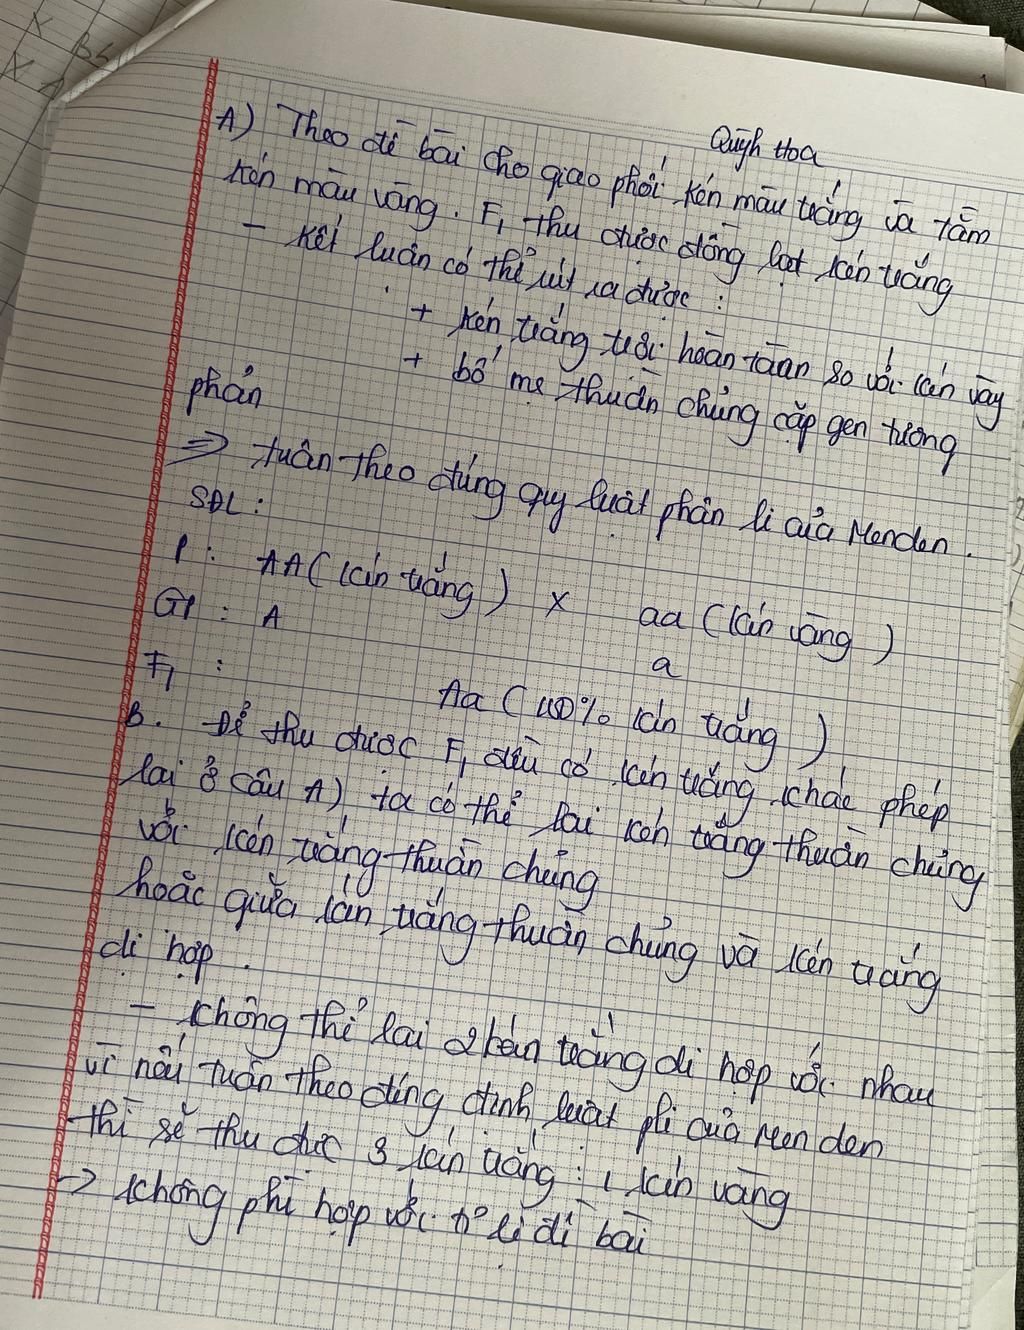 Quỳnh Hoa
A) Theo đề bài cho giao phối kén màu trắng và tằm
kén màu vàng. F1 thu được đồng loạt kén trắng
- kết luận có thể rút ra được :
+ kén trắng trội hoàn toàn so với kén vàng
+ bố mẹ thuần chủng cặp gen tương
phản
=> tuân theo đúng quy luật phân li của Menden.
SĐL :
P : AA (kén trắng) x aa (kén vàng)
GP : A a
F1 : Aa (100% kén trắng)
B. Để thu được F1 đều có kén trắng khác phép
lai ở câu A) ta có thể lai kén trắng thuần chủng
với kén trắng thuần chủng
hoặc giữa kén trắng thuần chủng và kén trắng
dị hợp.
- không thể lai 2 kén trắng dị hợp với nhau
vì nếu tuân theo đúng định luật pli của Menden
thì sẽ thu được 3 kén trắng : 1 kén vàng
-> không phù hợp với tỉ lệ đề bài